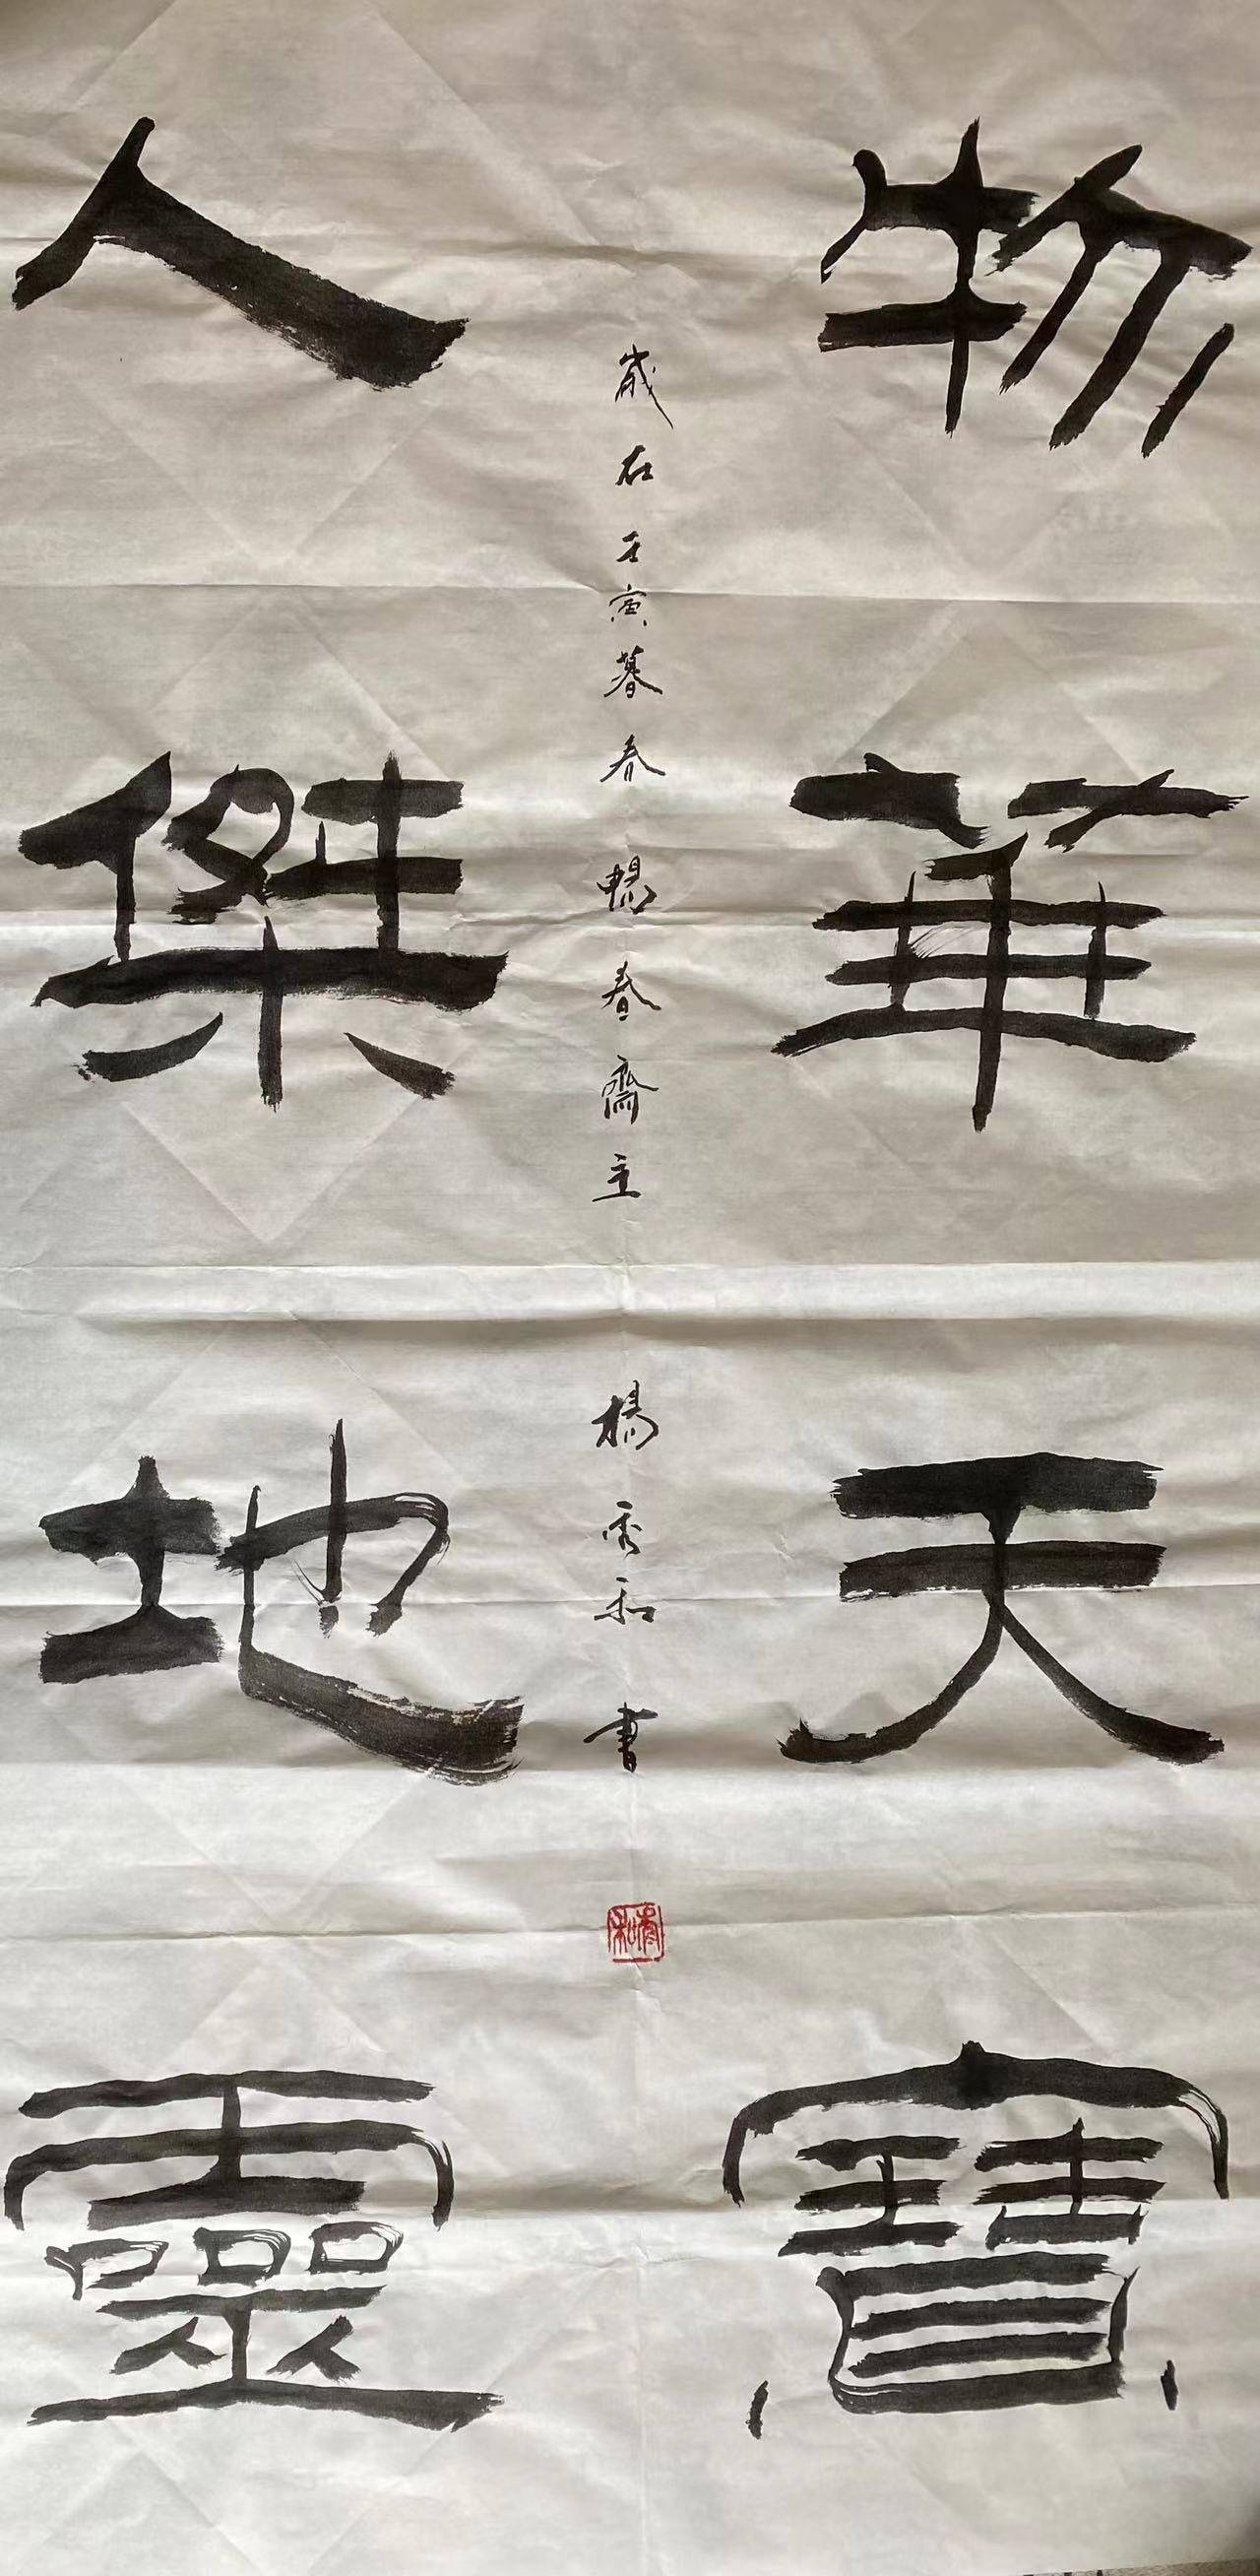 物華天寶
歲在壬寅暮春暢春齋主 楊秀和書
秀和
人傑地靈